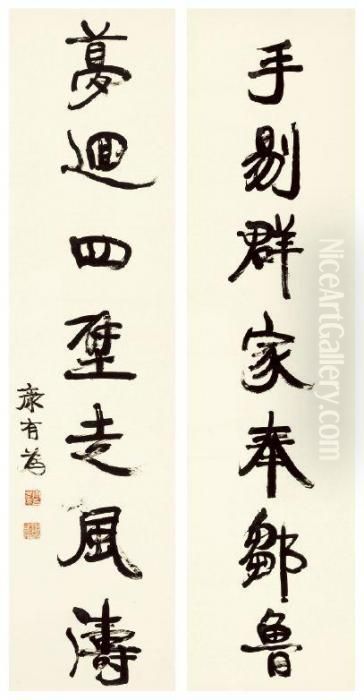 手剔群家奉鄒魯
夢迴四壁走風濤
康有為
NiceArtGallery.com